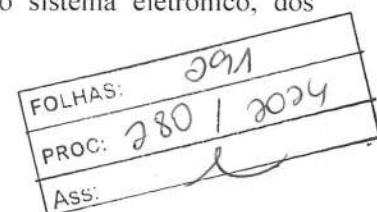 o sistema eletrônico, dos
FOLHAS:
PROC: 280 | 2024
Ass: